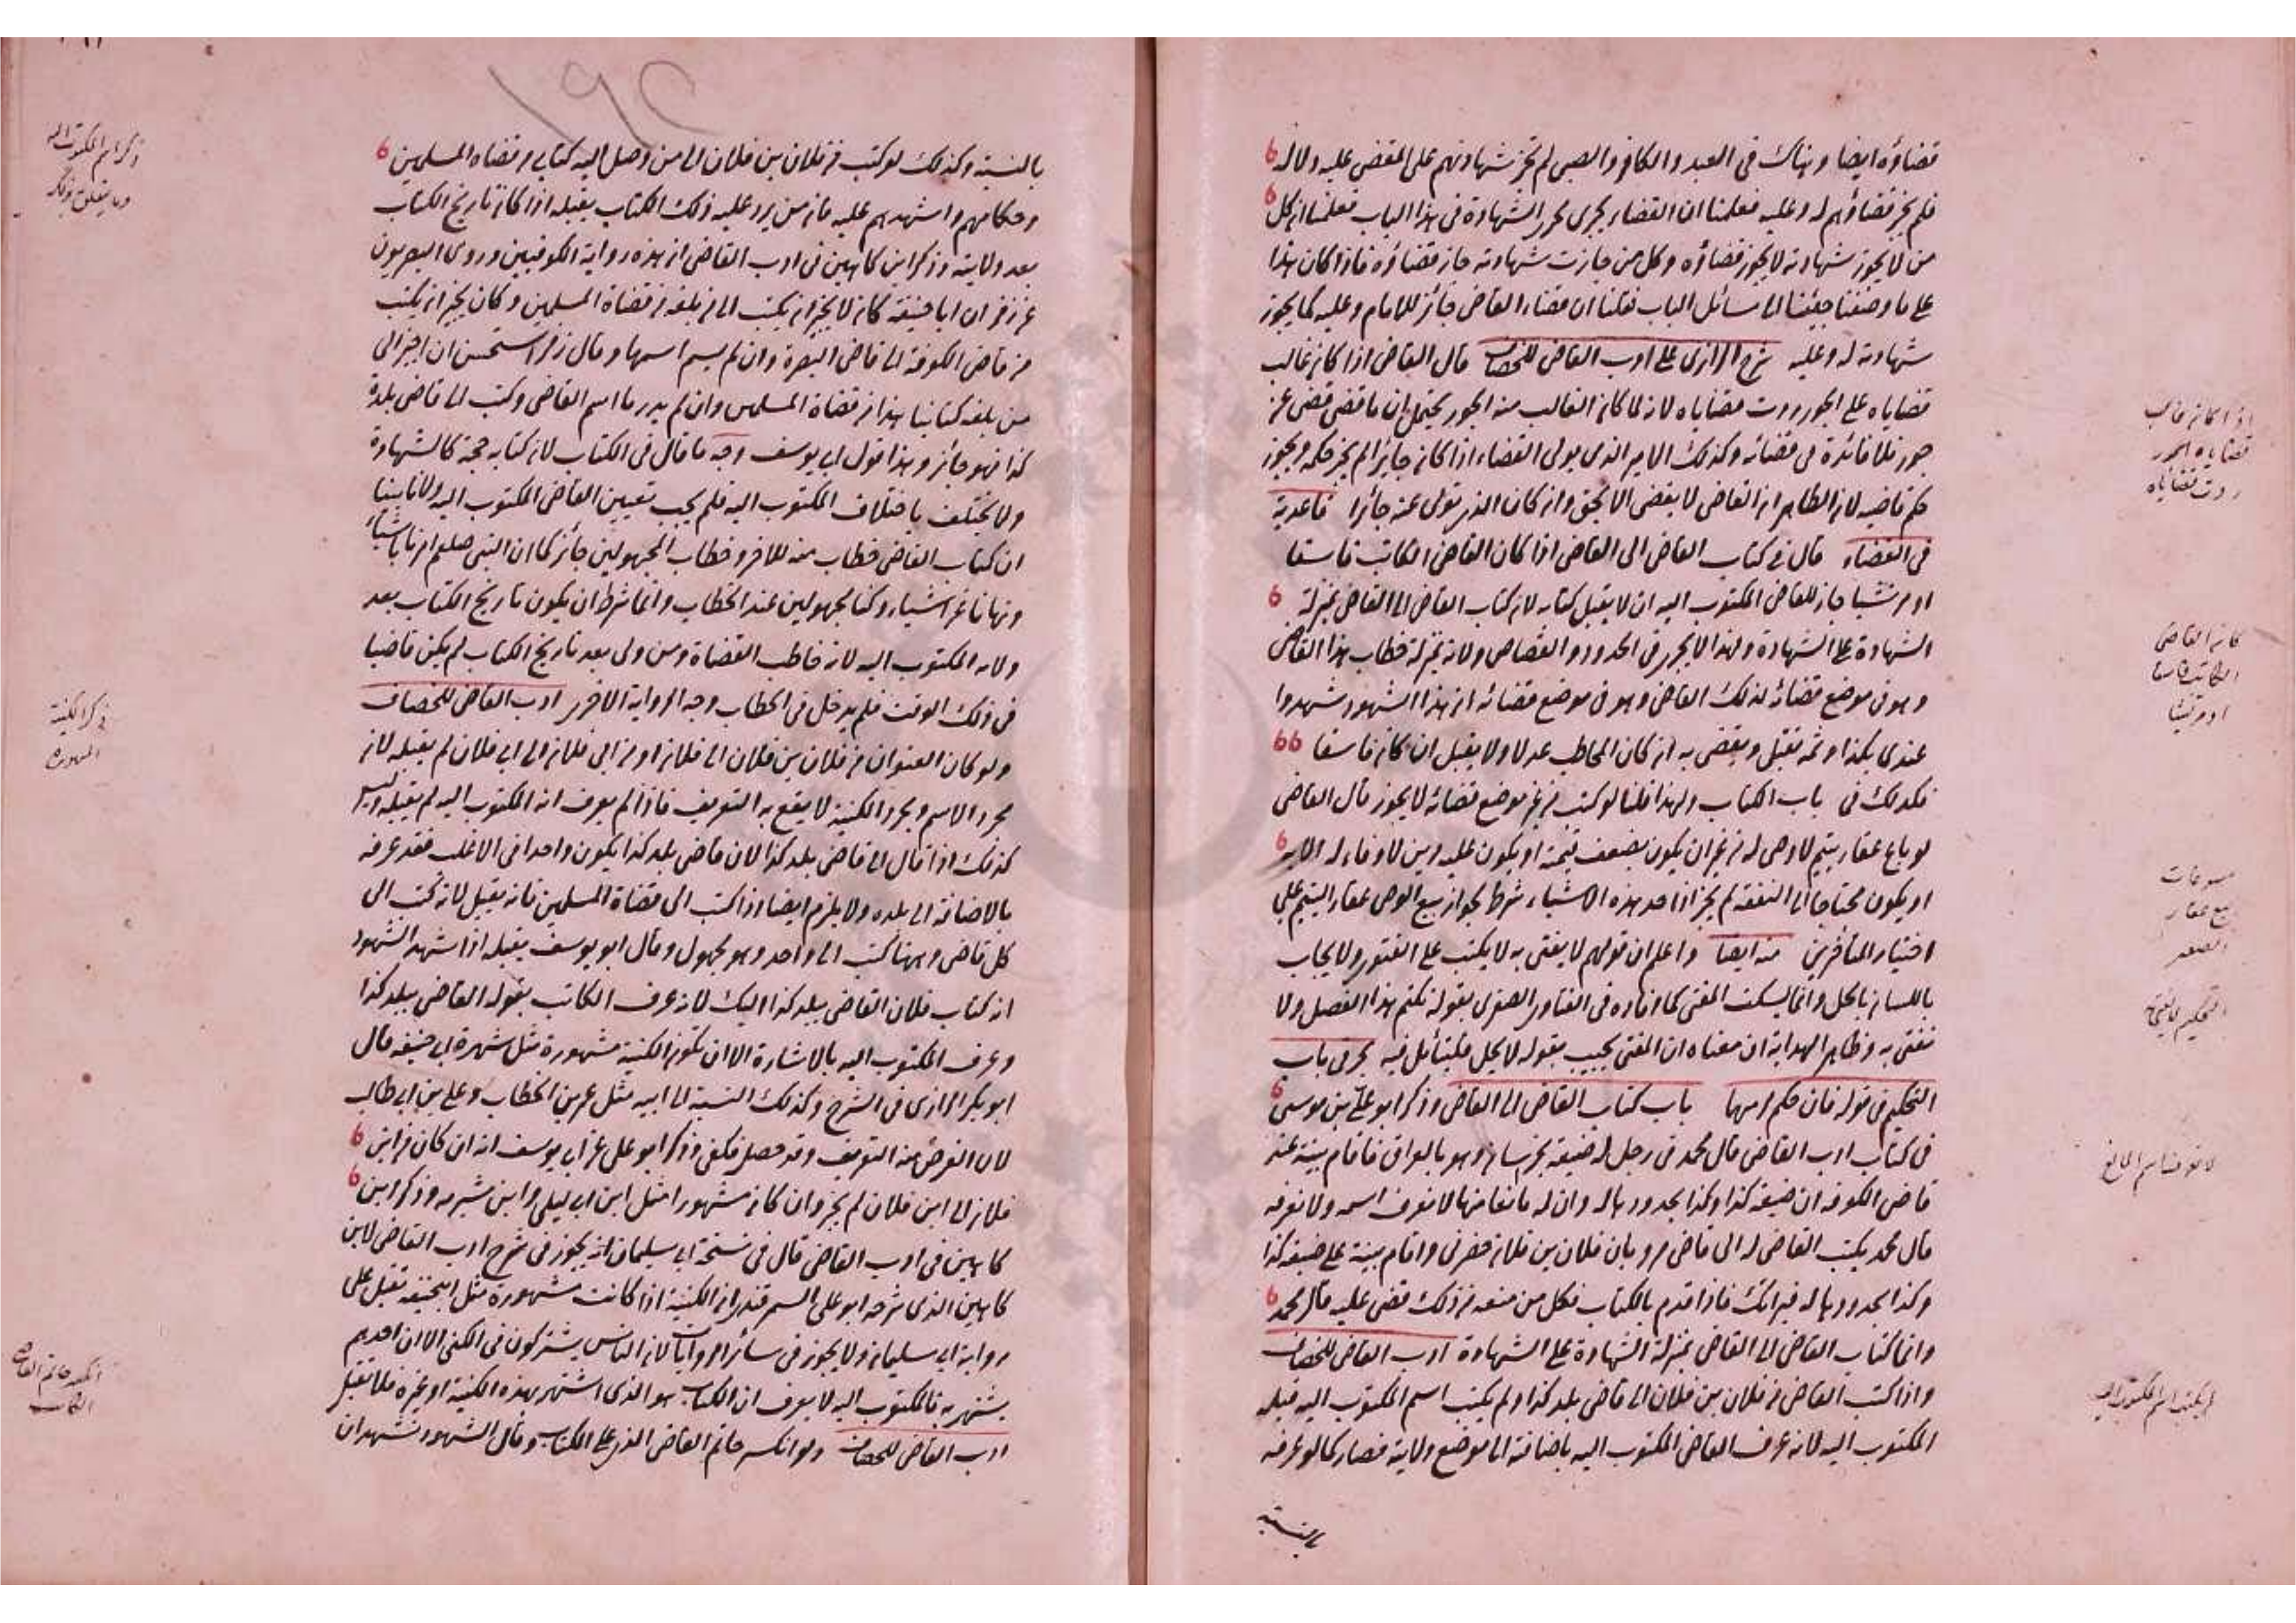 قضاؤه ايضا وبيانه في العبد والكافر والصبي لم تجز شهادتهم على المقضي عليه ولا له
فلم يجز قضاؤهم له وعليه فعلمنا ان القضاء يجري مجرى الشهادة في هذا الباب فعلمنا ان كل
من لا يجوز شهادته لا يجوز قضاؤه وكل من جازت شهادته جاز قضاؤه فاذا كان هذا
على ما وصفنا جئنا الى مسائل الباب فقلنا ان قضاء القاضي جائز للامام وعليه كما يجوز
شهادته له وعليه شرح الرازي على ادب القاضي للخصاف قال القاضي اذا كان غالب
قضاياه على الجور ردت قضاياه لانه لما كان الغالب منه الجور يحتمل ان ما قضى قضى عن
جور فلا فائدة في قضائه وكذلك الامير الذي يولي القضاء اذا كان جائرا لم يجز حكمه ويجوز
حكم قاضيه لان الظاهر ان القاضي لا يقضي الا بحق وان كان الذي تولى عنه جائرا قاعدية
في القضاء قال في كتاب القاضي الى القاضي اذا كان القاضي الكاتب فاسقا
او مرتشيا جاز للقاضي المكتوب اليه ان لا يقبل كتابه لان كتاب القاضي الى القاضي بمنزلة
الشهادة على الشهادة ولهذا لا يجوز في الحدود والقصاص ولانه بمنزلة خطاب هذا القاضي
وهو في موضع قضائه لذلك القاضي وهو في موضع قضائه ان هذا الشهود شهدوا
عندي بكذا وثمه يقبل ويقضي به ان كان المخاطب عدلا ولا يقبل ان كان فاسقا
فكذلك في باب الكتاب ولهذا قلنا لو كتب في غير موضع قضائه لا يجوز قال القاضي
لو باع عقار يتيم لا وصي له من غير ان يكون بضعف قيمته او يكون عليه دين لا وفاء له الا به
او يكون محتاجا الى النفقة لم يجز اذ احد هذه الاشياء شرط لجواز بيع الوصي عقار اليتيم على
اختيار المتأخرين منه ايضا واعلم ان قولهم لا يفتى به لا يكتب على الفتوى ولا يجاب
باللسان بالحل وانما يسكت المفتي كما افاده في الفتاوى الصغرى بقوله نكتم هذا الفصل ولا
نفتي به وظاهر الهداية ان معناه ان المفتي يجيب بقوله لا يحل فليتأمل فيه بحر في باب
التحكيم في قوله فان حكم لهما باب كتاب القاضي الى القاضي وذكر ابو علي بن موسى
في كتاب ادب القاضي قال محمد في رجل له ضيعة بخراسان وهو بالعراق فاقام بينة عند
قاضي الكوفة ان ضيعة كذا وكذا بحدودها له وان له مانعا منها لا نعرف اسمه ولا نعرفه
قال محمد يكتب القاضي له الى قاضي مرو بان فلان بن فلان حضرني واقام بينة على ضيعة كذا
وكذا بحدودها له فاذا قدم بالكتاب فكل من منعه من ذلك قضى عليه قال محمد
وانما كتاب القاضي الى القاضي بمنزلة الشهادة على الشهادة ادب القاضي للخصاف
واذا كتب القاضي من فلان بن فلان الى قاضي بلد كذا ولم يكتب اسم المكتوب اليه قبله
المكتوب اليه لانه عرف القاضي المكتوب اليه باضافته الى موضع ولايته فصار كما لو عرفه
بالنسبة
اذا كان غالب
قضاياه الجور
ردت قضاياه
كان القاضي
الكاتب فاسقا
او مرتشيا
بيع عقار
بالنسبة وكذلك لو كتب من فلان بن فلان الى من وصل اليه كتابي من قضاة المسلمين
وحكامهم واشهدهم عليه فان من يرد عليه ذلك الكتاب يقبله اذا كان تاريخ الكتاب
بعد ولايته وذكر ابن كاس في ادب القاضي ان هذه رواية الكوفيين وروى البصريون
عن زفر ان ابا حنيفة كان لا يجيز ان يكتب الى من بلغه من قضاة المسلمين وكان يجيز ان يكتب
من قاضي الكوفة الى قاضي البصرة وان لم يسم اسمها وقال زفر استحسن ان اجيز الى
من بلغه كتابنا هذا من قضاة المسلمين وان لم يدر ما اسم القاضي وكتب الى قاضي بلدة
كذا فهو جائز وهذا قول ابي يوسف وجه ما قال في الكتاب لان كتابه حجة كالشهادة
ولا يختلف باختلاف المكتوب اليه فلم يجب تعيين القاضي المكتوب اليه ولانا بينا
ان كتاب القاضي خطاب منه للاخر وخطاب المجهولين جائز كما ان النبي صلعم امرنا باشياء
ونهانا عن اشياء وكنا مجهولين عند الخطاب وانما شرط ان يكون تاريخ الكتاب بعد
ولاية المكتوب اليه لانه خاطب القضاة ومن ولي بعد تاريخ الكتاب لم يكن قاضيا
في ذلك الوقت فلم يدخل في الخطاب وجه الرواية الاخرى ادب القاضي للخصاف
ولو كان العنوان من فلان بن فلان الى فلان او من ابي فلان الى ابي فلان لم يقبله لان
مجرد الاسم ومجرد الكنية لا يقع به التعريف فاذا لم يعرف انه المكتوب اليه لم يقبله وليس
كذلك اذا قال الى قاضي بلد كذا لان قاضي بلد كذا يكون واحدا في الاغلب فقد عرفه
بالاضافة الى بلده ولا يلزم ايضا اذا كتب الى قضاة المسلمين فانه يقبل لانه كتب الى
كل قاضي وههنا كتب الى واحد وهو مجهول وقال ابو يوسف يقبله اذا شهد الشهود
انه كتاب فلان القاضي ببلد كذا اليك لانه عرف الكاتب بقوله القاضي ببلد كذا
وعرف المكتوب اليه بالاشارة الا ان تكون الكنية مشهورة مثل شهرة ابي حنيفة قال
ابو بكر الرازي في الشرح وكذلك النسبة الى ابيه مثل عمر بن الخطاب وعلي بن ابي طالب
لان الغرض منه التعريف وقد حصل فكفى وذكر ابو علي عن ابي يوسف انه ان كان من ابن
فلان الى ابن فلان لم يجز وان كان مشهورا مثل ابن ابي ليلى وابن شبرمه وذكر ابن
كاس في ادب القاضي قال في نسخة ابي سليمان انه يجوز في شرح ادب القاضي لابن
كاس الذي شرحه ابو علي السمرقندي ان الكنية اذا كانت مشهورة مثل ابي حنيفة تقبل على
رواية ابي سليمان ولا يجوز في سائر الروايات لان الناس يشتركون في الكنى الا ان احدهم
يشتهر به فالمكتوب اليه لا يعرف ان الكتاب هو الذي اشتهر بهذه الكنية او غيره فلا يقبل
ادب القاضي للخصاف ولو انكسر خاتم القاضي الذي على الكتاب وقال الشهود نشهد ان
ذكر اسم المكتوب اليه
وما يتعلق بذلك
ذكر الكنية
المشهورة
انكسر خاتم القاضي
الكاتب